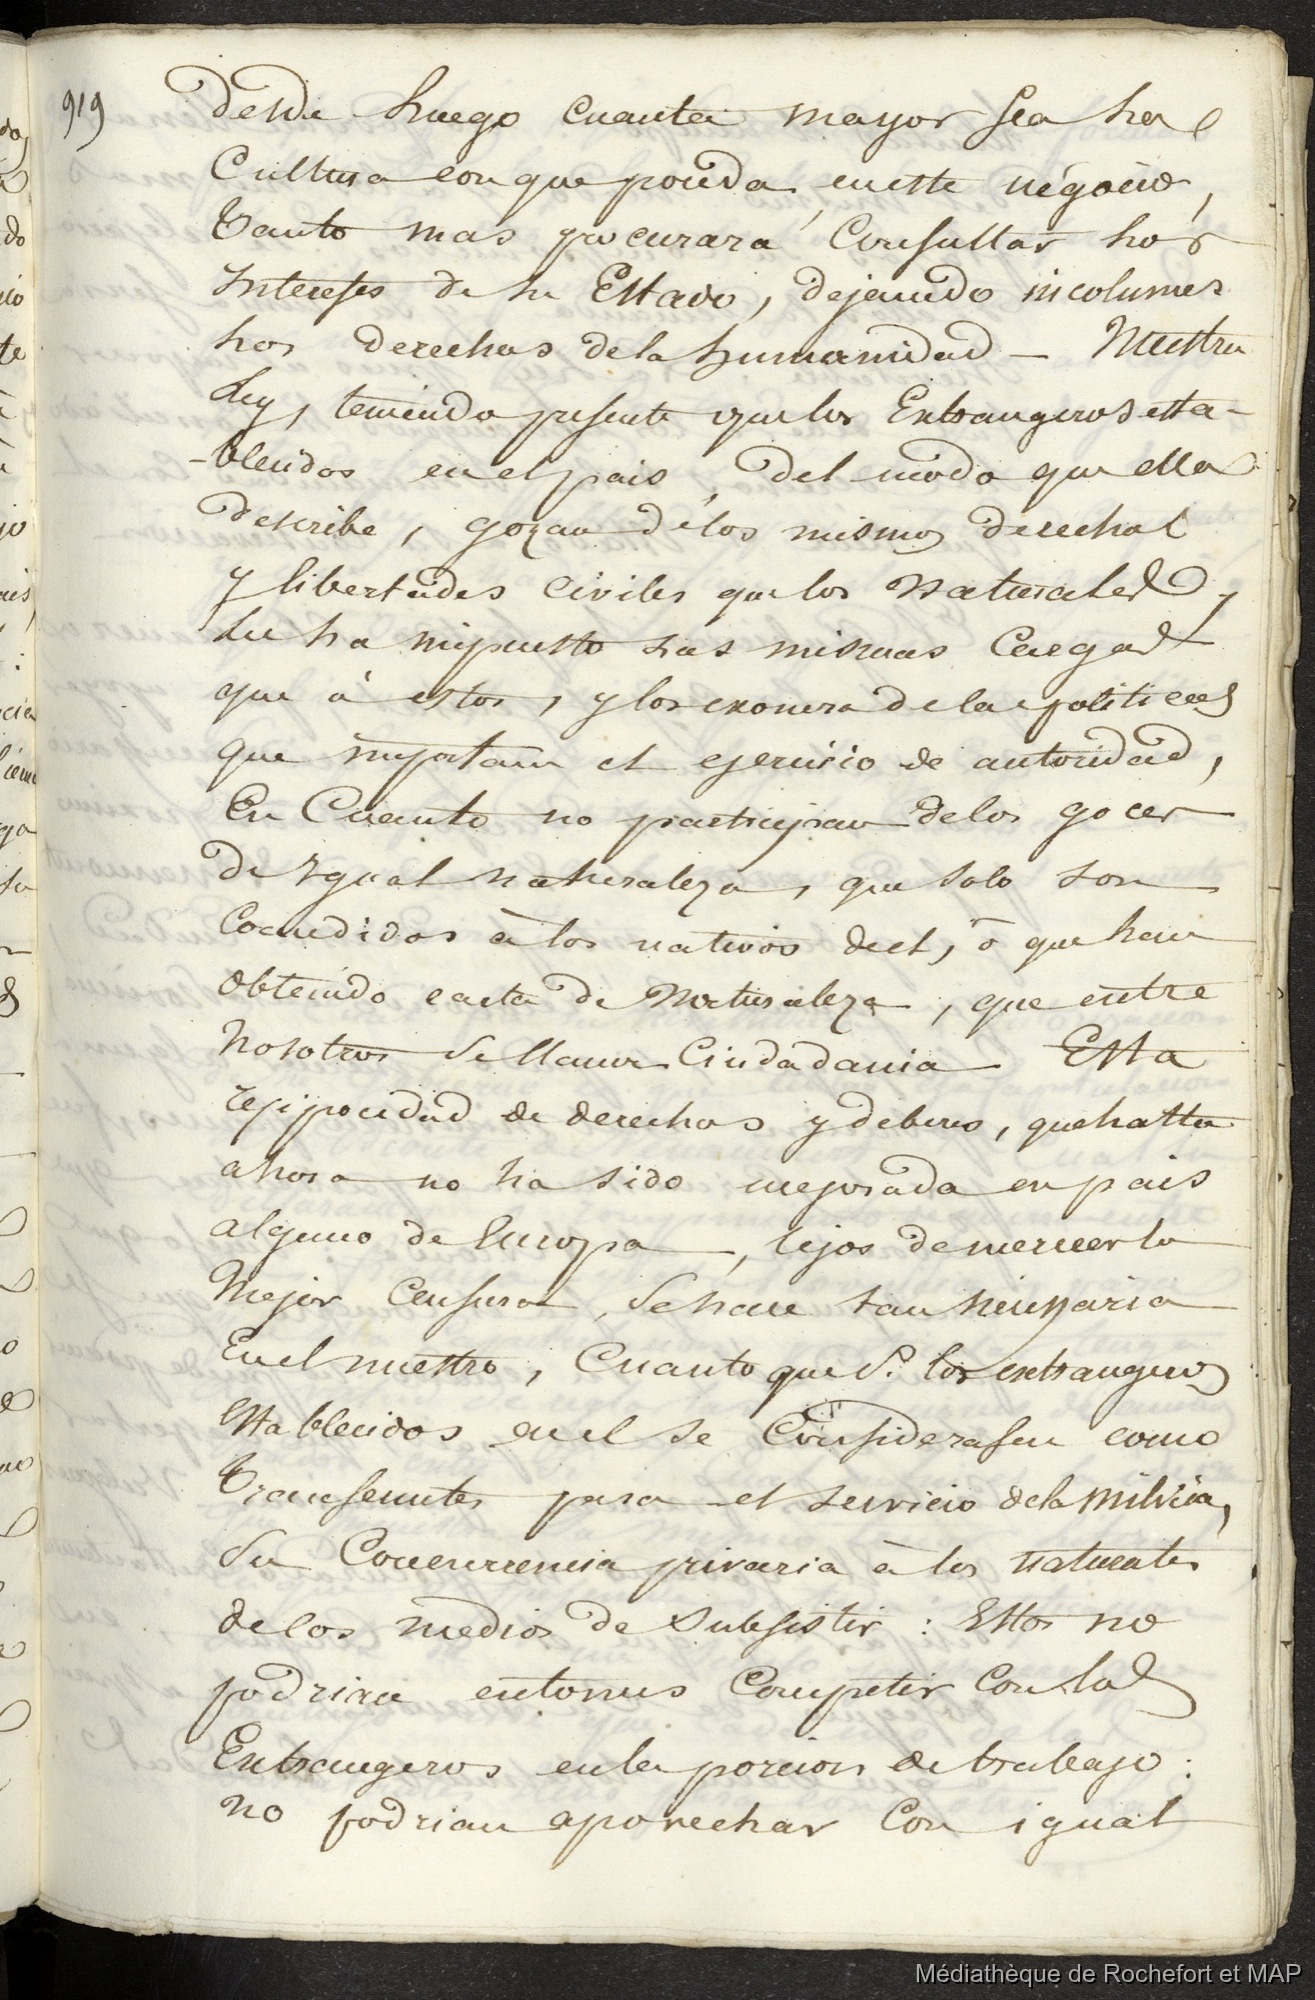 919
desde huego cuanta mayor sea ha
Cultura con que poceda, eneste négocio,
Tanto mas procurara Consultar hos
Intereses de su Estado, dejando incolumes
hos derechos dela humanidad — Nuestra
Ley, teniendo presente que los Extrangeros esta-
-blecidos en el pais, del modo que ella
describe, gozan délos mismos derechos
y libertades Civiles que los Naturales,
Les ha impuesto has mismas Cargas
que à estos, y los exonera dela politicas
que importan el egercicio de autoridad,
En Cuanto no participan delos goces
de Igual naturaleza, que solo son
Concedidos à los nativos deel, ó que han
obtenido carta de Naturaleza, que entre
Nosotros se llama Ciudadania. Esta
reciprocidad de derechos y deberes, quehasta
ahora no ha sido mejorada en pais
alguno de Europa, lejos demerecerla
Mejor Censura, sehace tan necesaria
Enel nuestro, Cuanto que S. los extrangeros
Establecidos enel se Considerasen como
Transeuntes para el servicio dela milicia,
Su Concurrencia privaria à los naturales
delos medios de subsistir : Estos no
podrian entonces Competir Con los
Extrangeros enla porcion de trabajo :
no podrian aporechar Con igual
Médiathèque de Rochefort et MAP